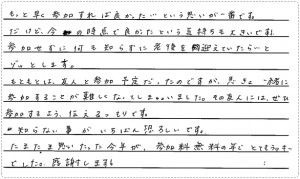 もっと早く参加すれば良かったという思いが一番です。
だけど、今の時点で良かったという気持ちも大きいです。
参加せずに何も知らずに老後を迎えていたらと
ゾッとします。
もともとは、友人と参加予定だったのですが、急きょ一緒に
参加することが難しくなってしまいました。その友人には、ぜひ
参加するよう、伝えるつもりです。
知らない事がいちばん恐ろしいです。
たまたま思いたった今年が、参加料無料の年でとてもラッキー
でした。感謝します